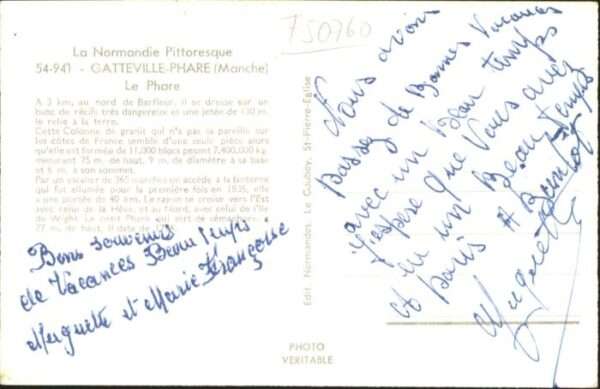 750760
La Normandie Pittoresque
54-941 - GATTEVILLE-PHARE (Manche)
Le Phare
A 3 km, au nord de Barfleur, il se dresse sur un
butte de récifs très dangereux et une jetée de 130 m.
le relie à la terre.
Cette Colonne de granit qui n'a pas sa pareille sur
les côtes de France semble d'une seule pièce alors
qu'elle est formée de 11.000 blocs pesant 7.400.000 kg
mesurant 75 m. de haut, 9 m. de diamètre à sa base
et 6 m. à son sommet.
Par un escalier de 365 marches on accède à la lanterne
qui fut allumée pour la première fois en 1835, elle
a une portée de 40 km. Le rayon se croise vers l'Est
avec celui de la Hève, et au Nord, avec celui de l'Ile
de Wight. Le petit Phare qui sert de sémaphore
77 m. de haut. Il date de
Bons souvenirs
de Vacances Beau Temps
Muguette et Marie Françoise
Edit. Normandes, Le Goubey, St-Pierre-Eglise
PHOTO
VERITABLE
Nous avons
passez de Bonnes Vacances
avec un Beau temps
J'espère que Vous avez
et eu un Beau Temps
et Paris A Bientot
Muguette